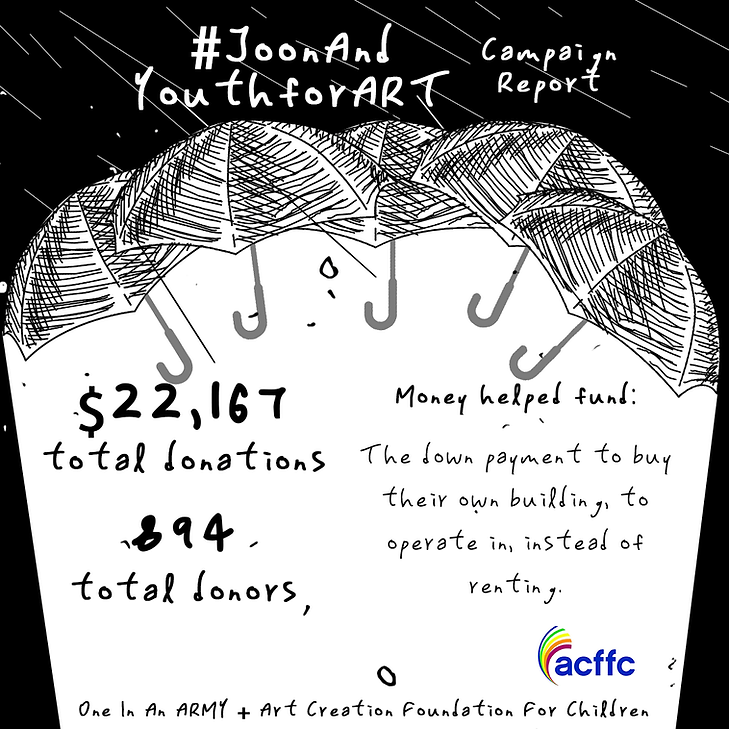 #JoonAnd
YouthforART
Campaign
Report
$22,167
total donations
894
total donors,
Money helped fund:
The down payment to buy
their own building, to
operate in, instead of
renting.
acffc
One In An ARMY + Art Creation Foundation For Children